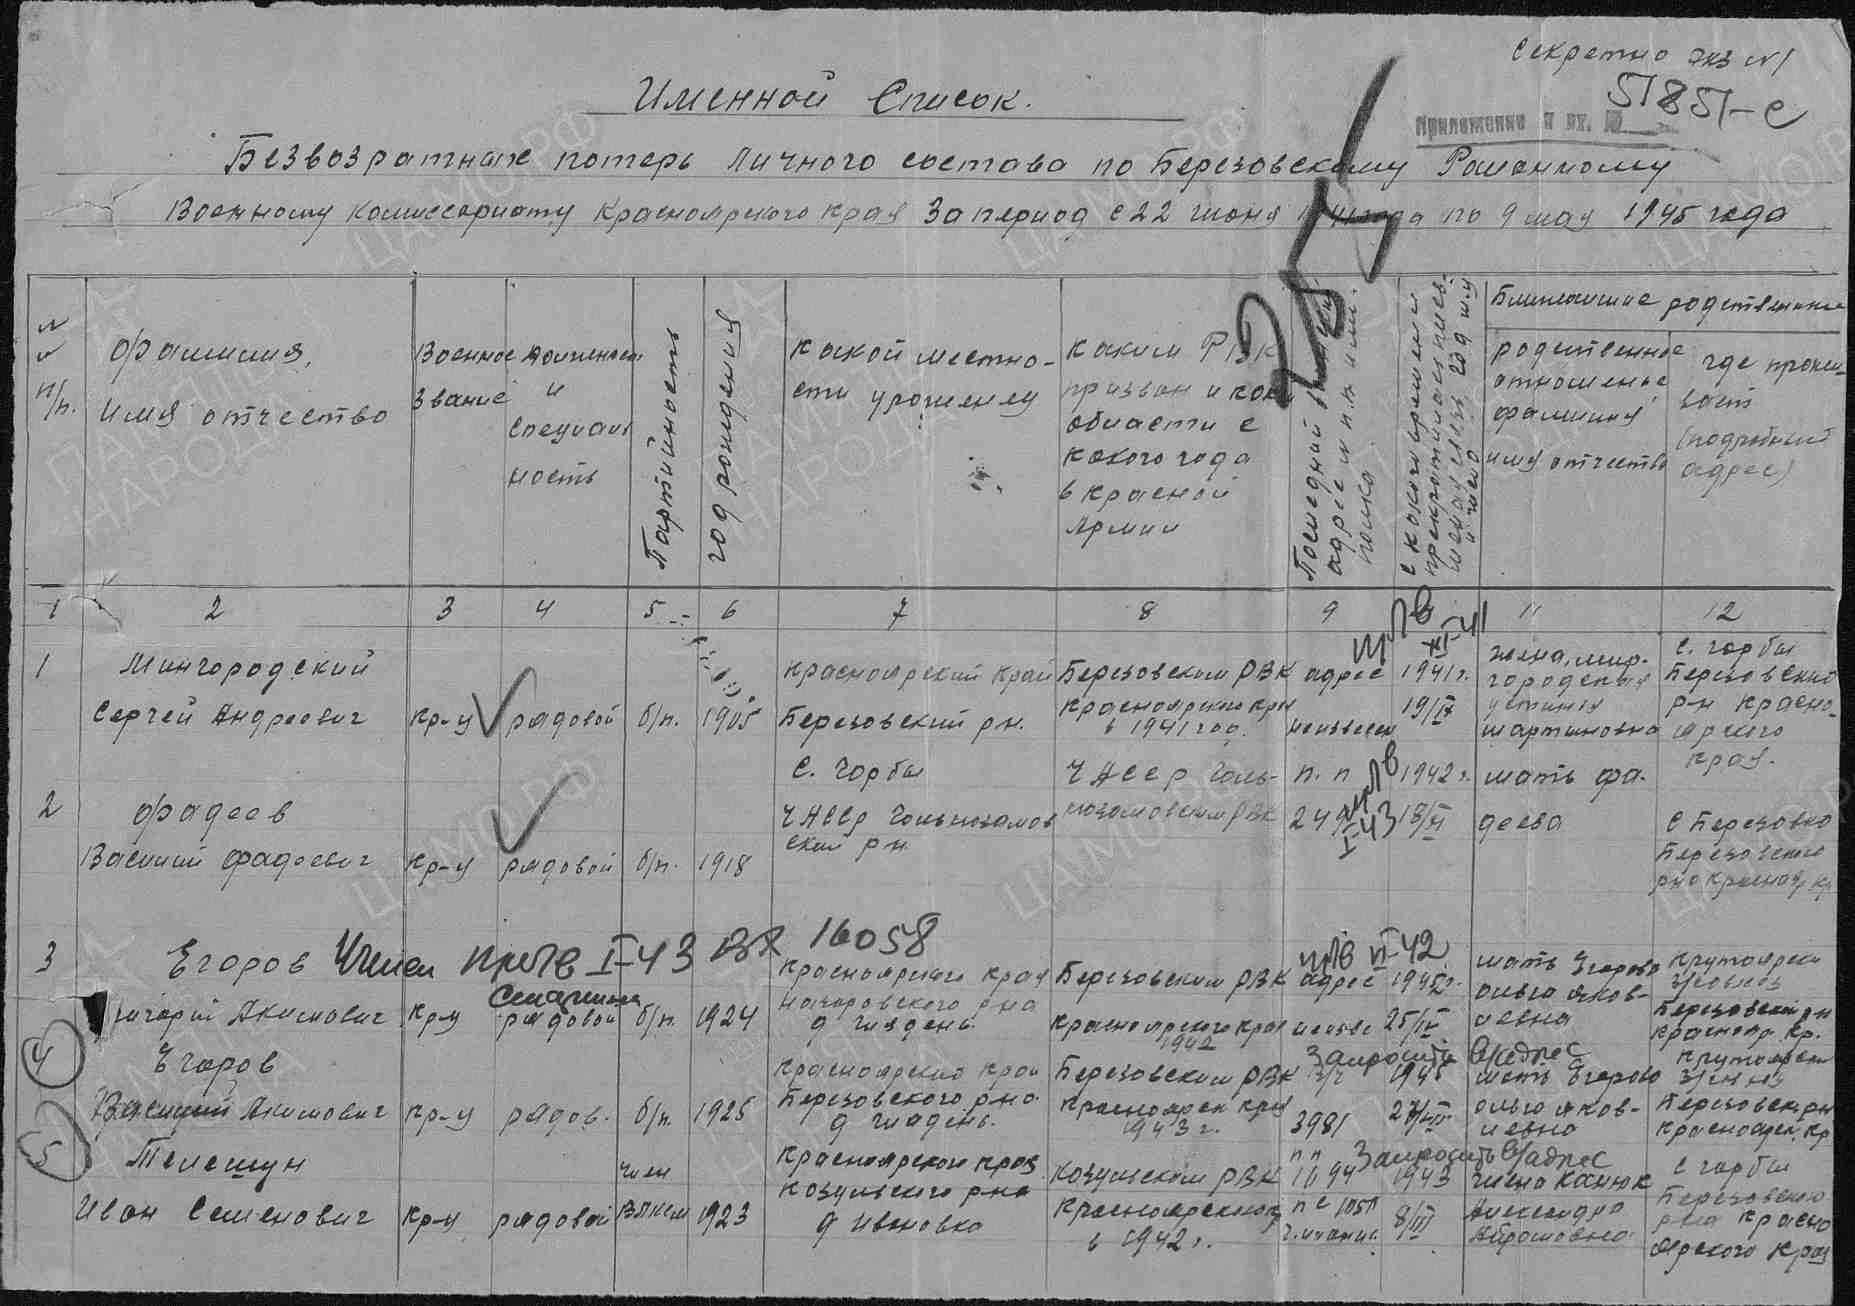 Секретно экз №1
51851-с
Приложение к вх. №
Именной Список.
Безвозвратных потерь личного состава по Березовскому Районному
Военному Комиссариату Красноярского края За период с 22 июня 1941 года по 9 мая 1945 года
№ п/п.
Фамилия, имя отчество
Военное звание
должность и специальность
Партийность
год рождения
какой местности уроженец
каким РВК призван и какой области с какого года в красной Армии
Последний адрес п.п или полка.
с какого времени прекратилась письменная связь год м-ц и число
Ближайшие родственники
родственное отношение, фамилия имя отчество
где проживает (подробный адрес)
1 2 3 4 5 6 7 8 9 11 12
1
Мингородский
Сергей Андреевич
кр-ц
рядовой
б/п.
1905
Красноярский край
Березовский р-н.
с. Горбы
Березовским РВК
Красноярского края
в 1941 год.
адрес
неизвестен
пр/в XI-41
1941 г.
19/IX
жена, мир-
городская
устинья
мартыновна
с. Горбы
Березовский
р-н Красно-
ярского
края.
2
Фадеев
Василий Фадеевич
кр-ц
рядовой
б/п.
1918
ЧАССР
ский р-н
ЧАССР
РВК
п. п
249
пр/в I-43
1942 г.
18/XI
мать Фа-
деева
с Березовка
Березовского
р-на Краснояр кр
3
Егоров Учтен пр/в I-43 вх 16058
Григорий Акимович
кр-ц
рядовой
б/п.
1924
Красноярского края
Назаровского р-на
д Глядень.
Березовским РВК
Красноярского края
1942
пр/в VI-42
адрес
неизве
1942 г.
25/IV
мать Егорова
ольга яков-
левна
Березовский р-н
Краснояр. кр.
4
Егоров
Василий Акимович
кр-ц
рядов.
б/п.
1925
Красноярский край
Березовского р-на
д Глядень.
Березовским РВК
Красноярск края
1943 г.
Запросить В/адрес
3981
1945
мать Егорова
ольга яков-
левна
Березовск р-н
Красноярск. кр
5
Телешун
Иван Семенович
кр-ц
рядовой
член
ВЛКСМ
1923
Красноярского края
Козульского р-на
д Ивановка
Козульским РВК
Красноярского к
в 1942 г.
Запросить В/адрес
п п
1694
1943
8/III
Канюк
Александра
Абрамовна
с Горбы
Березовского
р-на Красно
ярского края